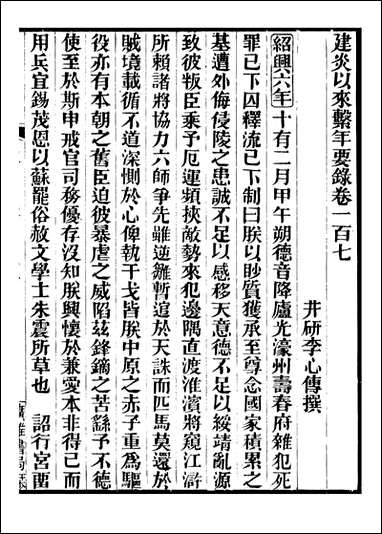 建炎以來繫年要錄卷一百七
井研李心傳撰
紹興六年十有二月甲午朔德音降廬光濠州壽春府雜犯死
罪已下囚釋流已下制曰朕以眇質獲承至尊念國家積累之
基遭外侮侵陵之患誠不足以感移天意德不足以綏靖亂源
致彼叛臣乘予厄運頻挾敵勢來犯邊隅直渡淮濱將窺江滸
所賴諸將協力六師爭先雖逆雛暫逭於天誅而匹馬莫還於
賊境載循不道深惻於心俾執干戈皆朕中原之赤子重為驅
役亦有本朝之舊臣迫彼暴虐之威陷茲鋒鏑之苦繇予不德
使至於斯申戒官司務優存沒知朕興懷於兼愛本非得已而
用兵宜錫茂恩以蘇罷俗赦文學士朱震所草也 詔行宮留
廣雅書局